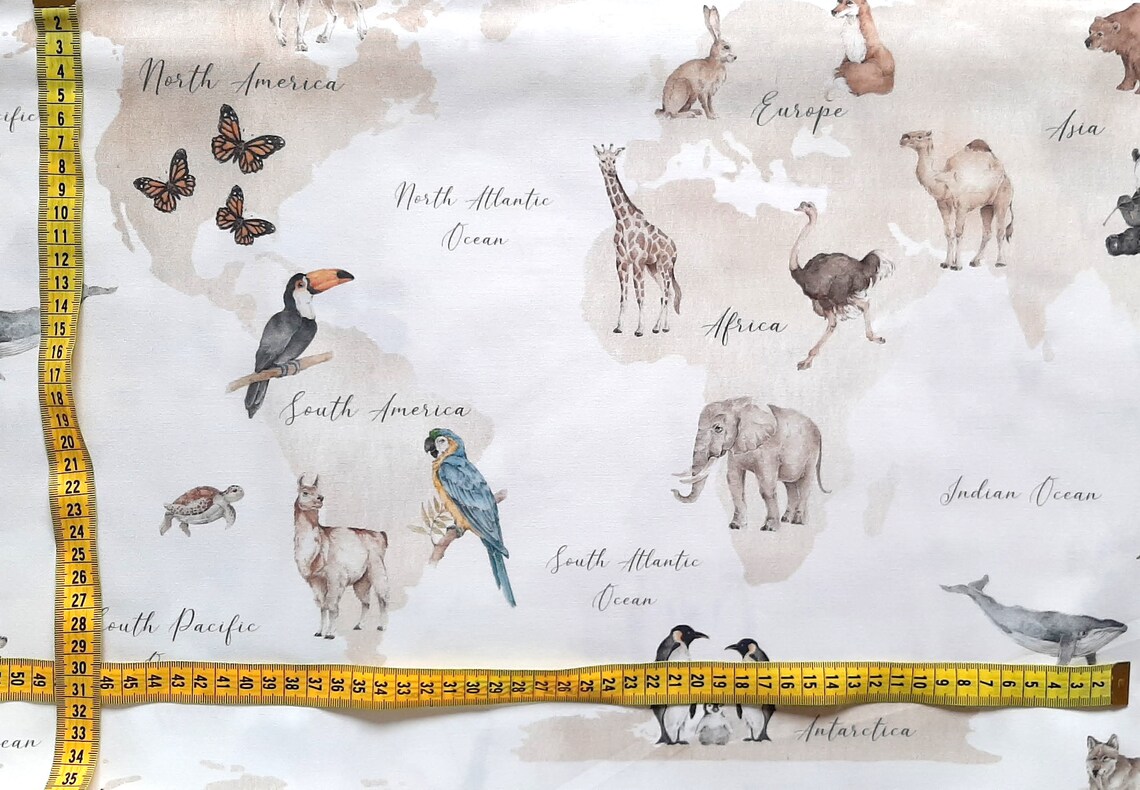 North America
cific
Europe
Asia
North Atlantic
Ocean
Africa
South America
Indian Ocean
South Atlantic
Ocean
South Pacific
Antarctica
ean
2
3
4
5
6
7
8
9
10
11
12
13
14
15
16
17
18
19
20
21
22
23
24
25
26
27
28
29
30
31
32
33
34
35
50 49 46 45 44 43 42 41 40 39 38 37 36 35 34 33 32 31 30 29 28 27 26 25 24 23 22 21 20 19 18 17 16 15 14 13 12 11 10 9 8 7 6 5 4 3 2